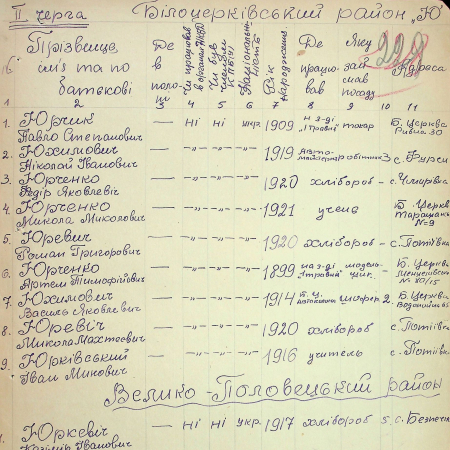 II черга Білоцерківський район "Ю"
Прізвище ім'я та по батькові Де в поло- Чи працював в органах НКВД Чи був членом КП(б)У Національність Рік народження Де працював Яку займав посаду Адреса
1 2 3 4 5 6 7 8 9 10 11
1. Юрчик Павло Степанович — ні ні укр. 1909 н з-ді "1 травня" токар Б. Церква 30
2. Юхимович Ніколай Іванович — -"- -"- -"- 1919 робітник 3 с. Фурси
3. Юрченко Яковлевіч — -"- -"- -"- 1920 хлібороб - с. Чмирівка
4. Юрченко Микола Миколович — -"- -"- -"- 1921 учень Б. Церкв №9
5. Юревич Роман Григорович — -"- -"- -"- 1920 хлібороб - с. Потіївка
6. Юрченко Артем Тимофійович — -"- -"- -"- 1899 на з-ді "1 травня" Б. Церква № 80/15
7. Юхимович Василь Яковлевіч — -"- -"- -"- 1914 Б.Ц. шофер 2. Б. Церква
8. Юревіч Микола — -"- -"- -"- 1920 хлібороб с. Потіївка
9. Юрківський Іван — -"- -"- -"- 1916 учитель с. Потіївка
Велико-Половецький район
1. Юркевич Іванович — ні ні укр. 1917 хлібороб 5 с. Безпечн